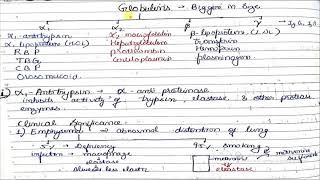 Globulins → Biggest in size
α1 α2 β γ → Ig G, A,
α1 antitrypsin α2 macroglobulin β-lipoprotein (LDL)
α1 lipoprotein (HDL) Haptoglobulin Transferrin
RBP prothrombin Hemopexin
TBG Ceruloplasmin plasminogen
CBP
Orosomucoid
① α1-Antitrypsin → α-anti proteinase
inhibits activity of trypsin, elastase & other protease
enzymes.
Clinical Significance
1) Emphysema → abnormal distention of lung
5% → Deficiency 95% Smoking
infection → macrophage methionine
elastase
Alveoli less elastic elastase